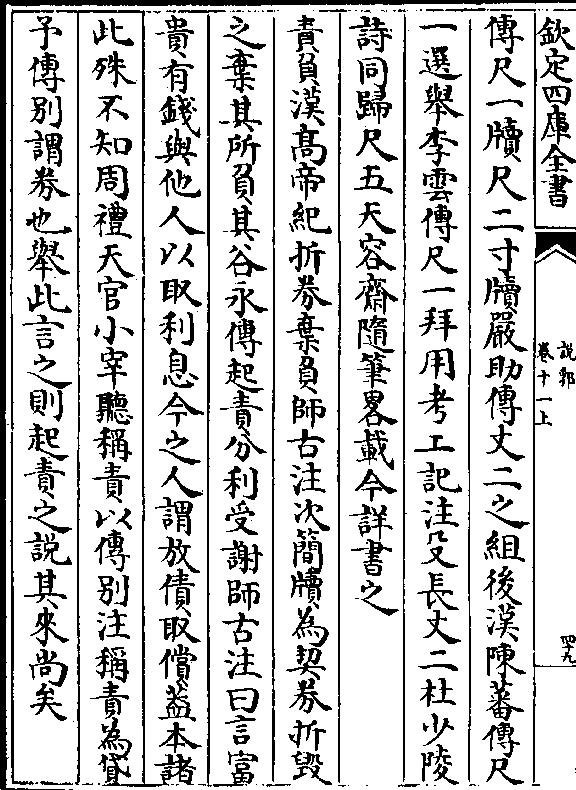 欽定四庫全書
說郛
卷十一上
四十九
傳尺一牘尺二寸牘嚴助傳丈二之組後漢陳蕃傳尺
一選舉李雲傳尺一拜用考工記注殳長丈二杜少陵
詩同歸尺五天容齋隨筆畧載今詳書之
責負漢高帝紀折券棄負師古注次簡牘為契券折毀
之棄其所負其谷永傳起責分利受謝師古注曰言富
貴有錢與他人以取利息今之人謂放債取償葢本諸
此殊不知周禮天官小宰聽稱責以傳別注稱責為貸
予傳別謂券也舉此言之則起責之說其來尚矣